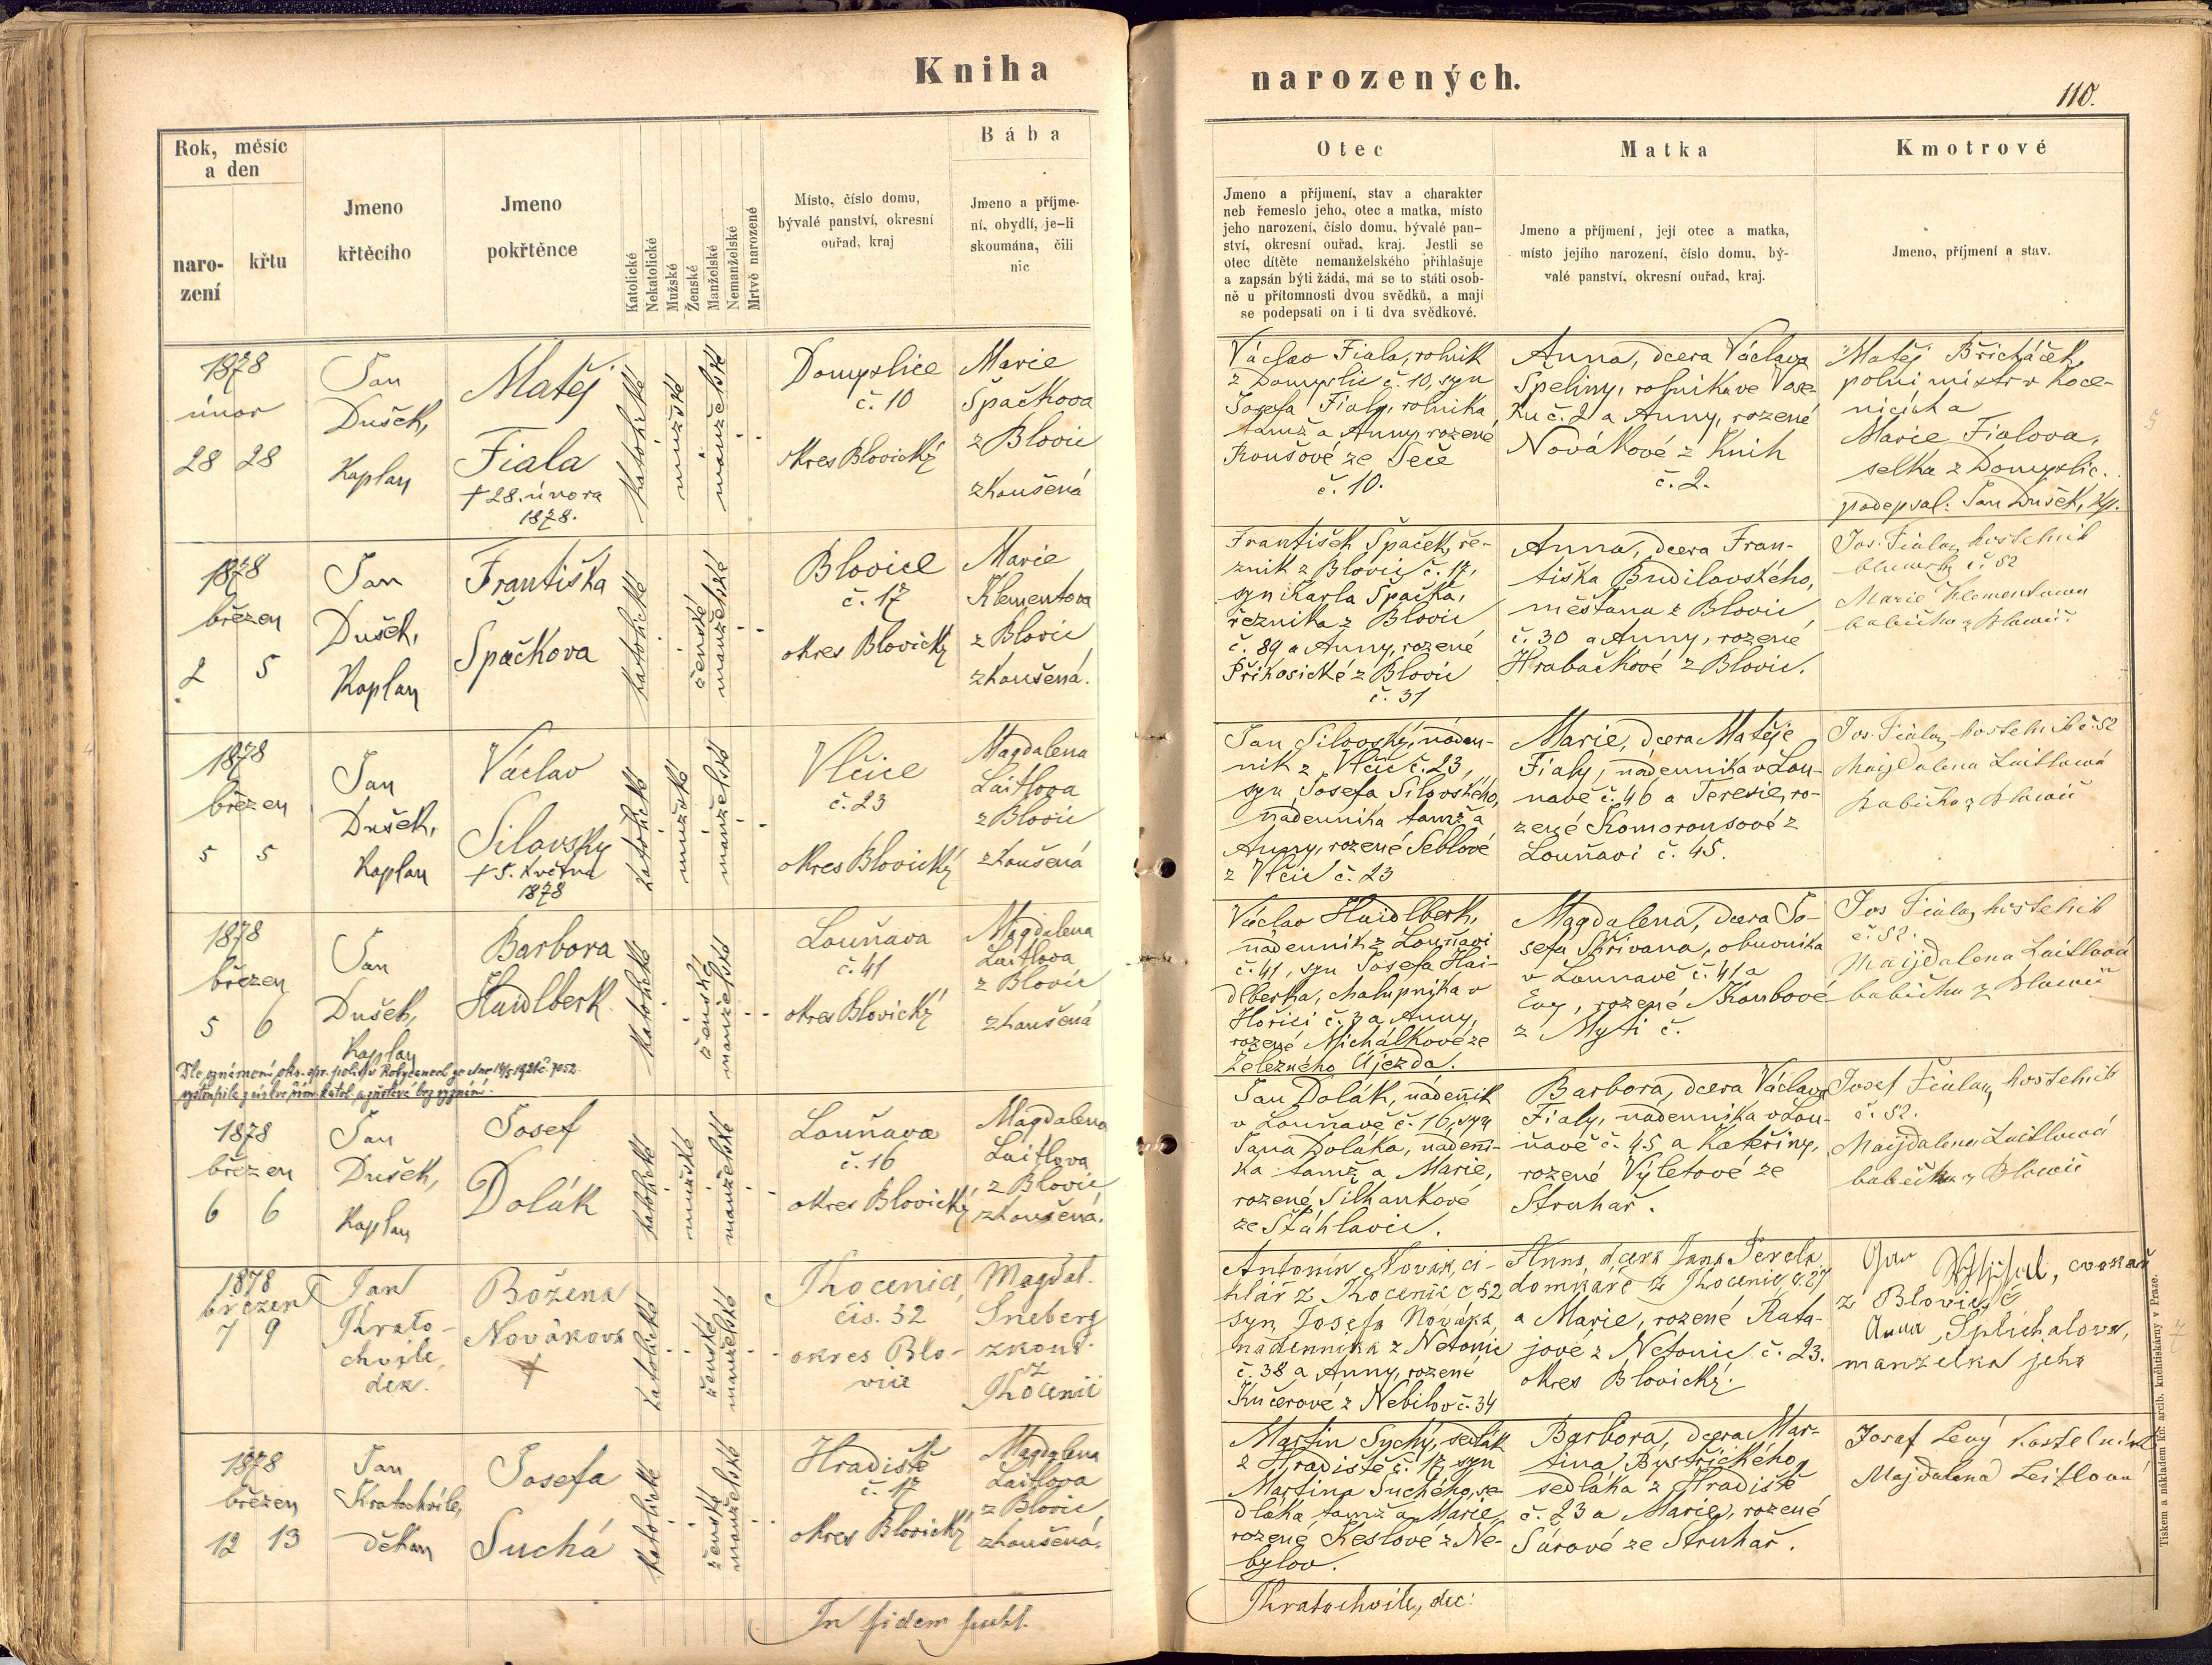 Kniha
narozených.
110.
Rok, měsíc
a den
naro-
zení
křtu
Jmeno
křtěcího
Jmeno
pokřtěnce
Katolické
Nekatolické
Mužské
Ženské
Manželské
Nemanželské
Mrtvě narozené
Místo, číslo domu,
bývalé panství, okresní
ouřad, kraj
Bába
Jmeno a příjme-
ní, obydlí, je-li
skoumána, čili
nic
Otec
Jmeno a příjmení, stav a charakter
neb řemeslo jeho, otec a matka, místo
jeho narození, číslo domu, bývalé pan-
ství, okresní ouřad, kraj. Jestli se
otec dítěte nemanželského přihlašuje
a zapsán býti žádá, má se to státi osob-
ně u přítomnosti dvou svědků, a mají
se podepsati on i ti dva svědkové.
Matka
Jmeno a příjmení, její otec a matka,
místo jejího narození, číslo domu, bý-
valé panství, okresní ouřad, kraj.
Kmotrové
Jmeno, příjmení a stav.
1878
únor
28 28
Jan
Dušek,
Kaplan
Matěj
Fiala
† 28. února
1878.
katolické
mužské
manželské
Domyslice
č. 10
okres Blovický
Marie
Špačkova
z Blovic
zkoušená
Václav Fiala, rolník
z Domyslic č. 10, syn
Josefa Fialy, rolníka
tamž a Anny, rozené
Koušové ze Seče
č. 10.
Anna, dcera Václava
Špeliny, rolníka ve Vose-
ku č. 2 a Anny, rozené
Novákové z Knih
č. 2.
Matěj Břicháček,
polní mistr v Koce-
nicích a
Marie Fialova,
selka z Domyslic.
podepsal: Jan Dušek, kp.
1878
březen
2 5
Jan
Dušek,
Kaplan
Františka
Špačkova
katolické
ženské
manželské
Blovice
č. 17
okres Blovický
Marie
Klementova
z Blovic
zkoušená.
František Špaček, ře-
zník z Blovic č. 17,
syn Karla Špačka,
řezníka z Blovic
č. 89 a Anny, rozené
Přikosické z Blovic
č. 31
Anna, dcera Fran-
tiška Budilovského,
měšťana z Blovic
č. 30 a Anny, rozené
Hrabačkové z Blovic.
Jos. Fiala, kostelník
č. 52
Marie Klementova
babička z Blowic.
1878
březen
5 5
Jan
Dušek,
Kaplan
Václav
Silovský
† 5. května
1878
katolické
mužské
manželské
Vlčice
č. 23
okres Blovický
Magdalena
Laitlova
z Blovic
zkoušená
Jan Silovský, náden-
ník z Vlčic č. 23,
syn Josefa Silovského,
nádenníka tamž a
Anny, rozené Šeblové
z Vlčic č. 23
Marie, dcera Matěje
Fialy, nádenníka v Lou-
ňavě č. 46 a Terezie, ro-
zené Komorousové z
Louňavi č. 45.
Jos. Fiala, kostelník č. 52
Maijdalena Laitlowá
babička z Blowic
1878
březen
5 6
Jan
Dušek,
Kaplan
Barbora
Haidlberk
katolické
ženské
manželské
Louňava
č. 41
okres Blovický
Magdalena
Laitlova
z Blovic
zkoušená
Václav Haidlberk,
nádenník z Louňavi
č. 41, syn Josefa Hai-
dlberka, chalupníka v
Hořici č. 3 a Anny,
rozené Michálkové ze
Železného Újezda.
Magdalena, dcera Jo-
sefa Skřivana, obuvníka
v Louňavě č. 41 a
Evy, rozené Koubové
z Mýti č.
Jos Fiala, kostelník
č. 52.
Maijdalena Laitlowá
babička z Blowic
Dle oznámení okr. spr. politické v Rokycanech ze dne 14/5 1921 č. 7052
vystoupila z církve řím. katol. a zůstává bez vyznání.
1878
březen
6 6
Jan
Dušek,
Kaplan
Josef
Dolák
katolické
mužské
manželské
Louňava
č. 16
okres Blovický
Magdalena
Laitlova
z Blovic
zkoušená.
Jan Dolák, nádeník
v Louňavě č. 16, syn
Jana Doláka, nádení-
ka tamž a Marie,
rozené Silhankové
ze Šťáhlavic.
Barbora, dcera Václava
Fialy, nádenníka v Lou-
ňavě č. 45 a Kateřiny,
rozené Výletové ze
Struhař.
Josef Fiala, kostelník
č. 52.
Maijdalena Laitlowá
babička z Blowic
1878
březen
7 9
Jan
Krato-
chvíle,
děk.
Božena
Novákova
†
katolické
ženské
manželské
Kocenic
čís. 32
okres Blo-
vice
Magdal.
Šneberg
zkouš.
z
Kocenic
Antonín Novák, ci-
hlář z Kocenic č 52
syn Josefa Nováka,
nádenníka z Netonic
č. 38 a Anny, rozené
Kučerové z Nebílov č. 34
Anna, dcera Jana Terela
domkaře z Kocenic č. 27
a Marie, rozené Rata-
jové z Netonic č. 23.
okres Blovický.
Jan Šplíchal, cvokař
z Blovic, č
Anna Šplíchalova,
manželka jeho
1878
březen
12 13
Jan
Kratochvíle,
děkan
Josefa
Suchá
katolické
ženské
manželské
Hradiště
č. 17
okres Blovický
Magdalena
Laitlova
z Blovic
zkoušená.
Martin Suchý, sedlák
z Hradiště č. 17, syn
Martina Suchého, se-
dláka tamž a Marie,
rozené Keslové z Ne-
bylov.
Barbora, dcera Mar-
tina Bystřického,
sedláka z Hradiště
č. 23 a Marie, rozené
Súrové ze Struhař.
Josef Levý kostelník
Majdalena Leitlowá
In fidem publ.
Kratochvíle, dec:
Tiskem a nákladem kníž. arcib. knihtiskárny v Praze.